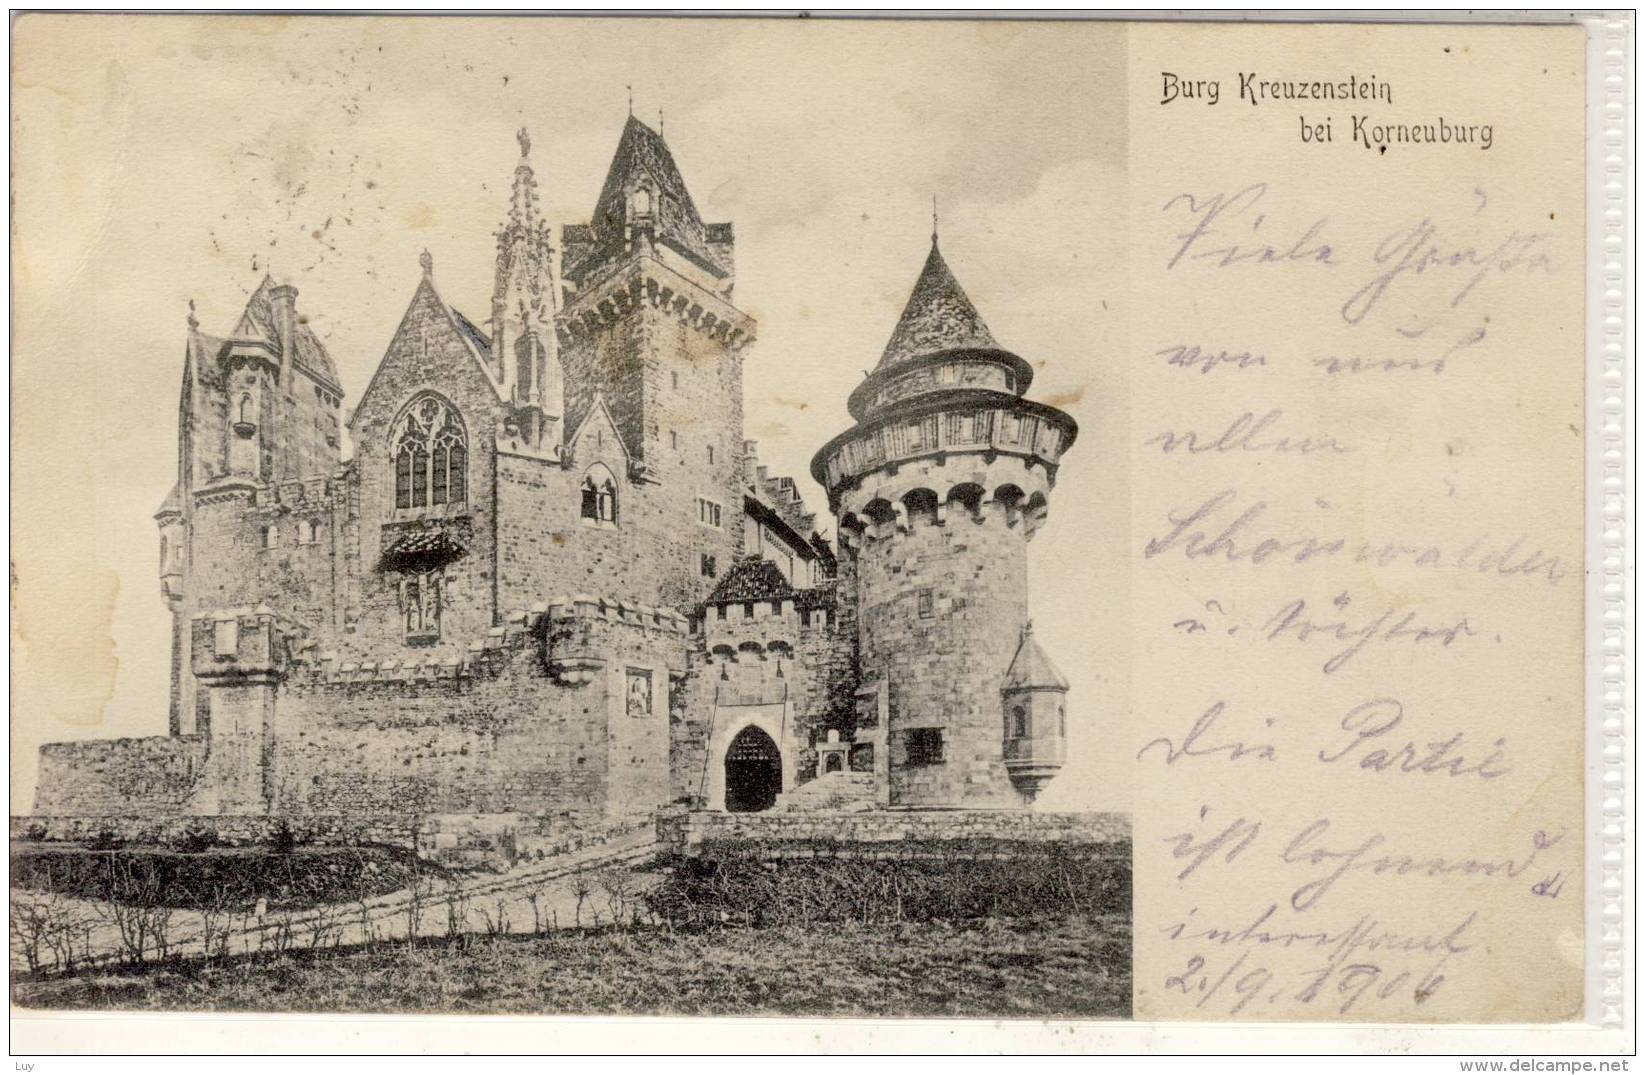 Burg Kreuzenstein
bei Korneuburg
Viele Grüße
von uns
allen
Schönwälder
u. Töchter.
Die Partie
ist lohnend
u.
interessant.
2./9. 1906
Luy
www.delcampe.net